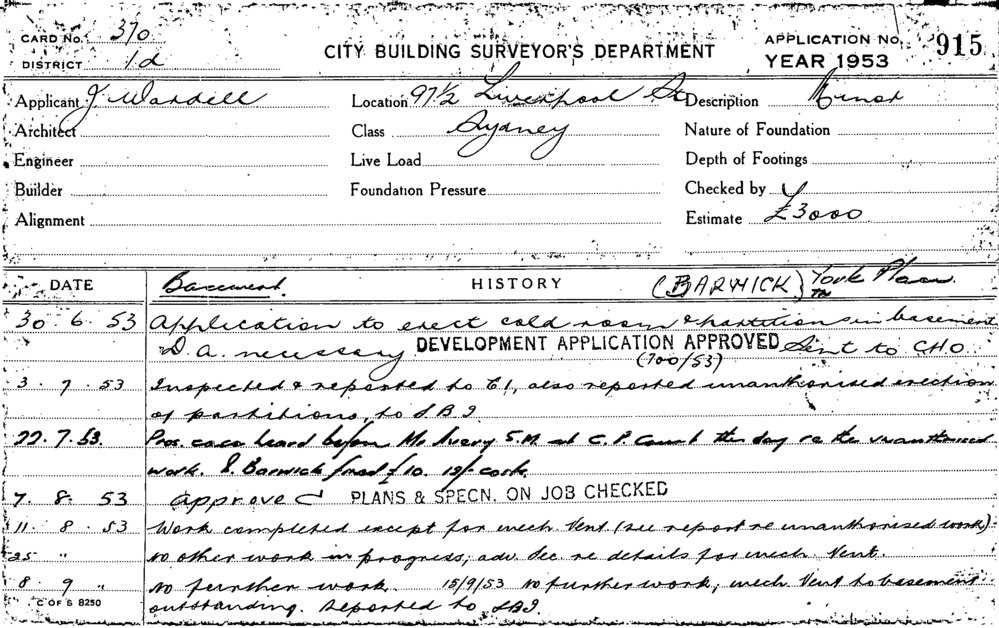 CARD No. 370
DISTRICT 1d
CITY BUILDING SURVEYOR'S DEPARTMENT
APPLICATION No. 915
YEAR 1953
Applicant J Wardell
Location 97½ Liverpool St
Description Minor
Architect
Class Sydney
Nature of Foundation
Engineer
Live Load
Depth of Footings
Builder
Foundation Pressure
Checked by
Alignment
Estimate £3000
DATE Basement. HISTORY (BARWICK) York Place
30 6 53 Application to erect cold room & partitions in basement
D. A. necessary DEVELOPMENT APPLICATION APPROVED Sent to CHO.
(700/53)
3. 7. 53 Inspected & reported to C1, also reported unauthorised erection
of partitions, to SBI
22.7.53. Pros. case heard before Mr Avery S.M. at C.P. Court this day re the unauthorised
work. S. Barwick fined £10. 12/- costs.
7. 8. 53 Approved PLANS & SPECN. ON JOB CHECKED
11. 8. 53 Work completed except for mech Vent (see report re unauthorised work)
25 " No other work in progress; adv. Sec. re details for mech Vent.
8. 9 " No further work. 15/9/53 No further work; mech Vent to basement
C OF S 8250 outstanding. Reported to SBI.